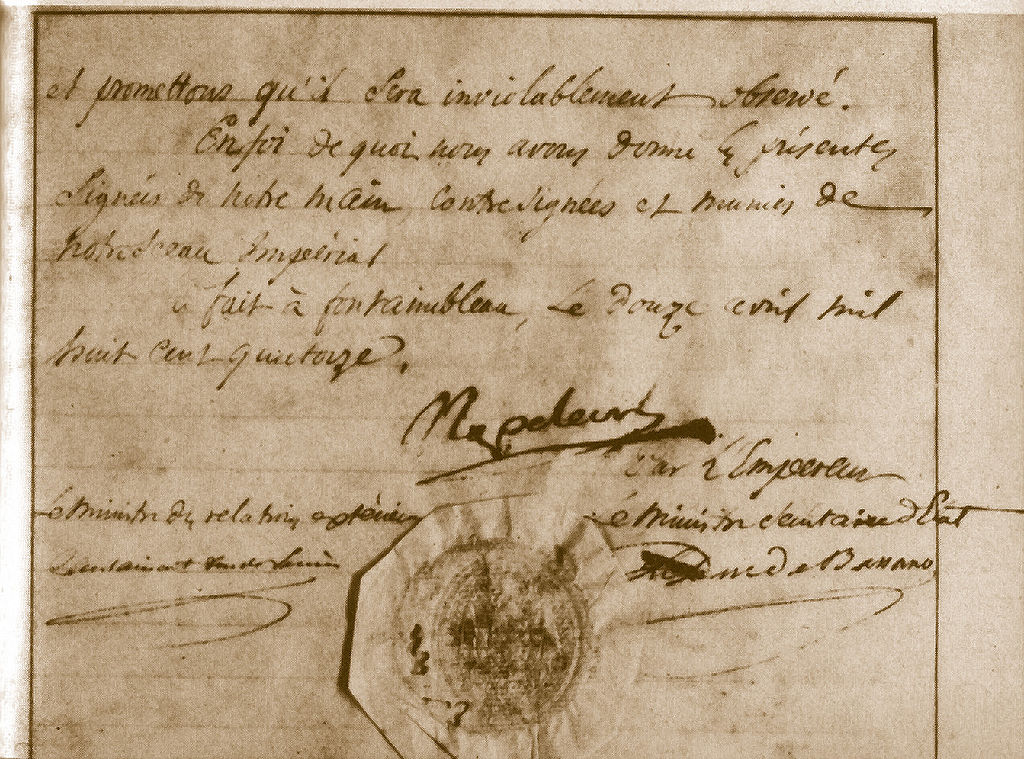 et promettons qu'il sera inviolablement observé.
En foi de quoi nous avons donné les présentes
Signées de notre main, contresignées et munies de
notre Sceau Impérial
fait à fontainebleau, le douze avril mil
huit cent quatorze.
Napoleon
Par l'Empereur
Le Ministre des relations extérieures
Le Ministre Secretaire d'Etat
de Bassano